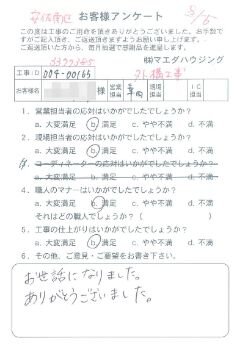 お客様アンケート
この度は工事のご用命を頂きありがとうございました。お手数で
すがご記入頂き、ご返送頂きますようお願い申し上げます。
ご返送頂いた方から、毎月抽選で感謝品を進呈します。
㈱マエダハウジング
工事ID
004-00165
外構工事
お客様名
様
営業担当
現場担当
IC担当
1. 営業担当者の応対はいかがでしたでしょうか?
a. 大変満足 b. 満足 c. やや不満 d. 不満
2. 現場担当者の応対はいかがでしたでしょうか?
a. 大変満足 b. 満足 c. やや不満 d. 不満
3. コーディネーターの応対はいかがでしたでしょうか?
a. 大変満足 b. 満足 c. やや不満 d. 不満
4. 職人のマナーはいかがでしたでしょうか?
a. 大変満足 b. 満足 c. やや不満 d. 不満
それはどの職人でしょうか?( )
5. 工事の仕上がりはいかがでしたでしょうか?
a. 大変満足 b. 満足 c. やや不満 d. 不満
6. その他、ご意見・ご要望をお書き下さい。
お世話になりました。
ありがとうございました。